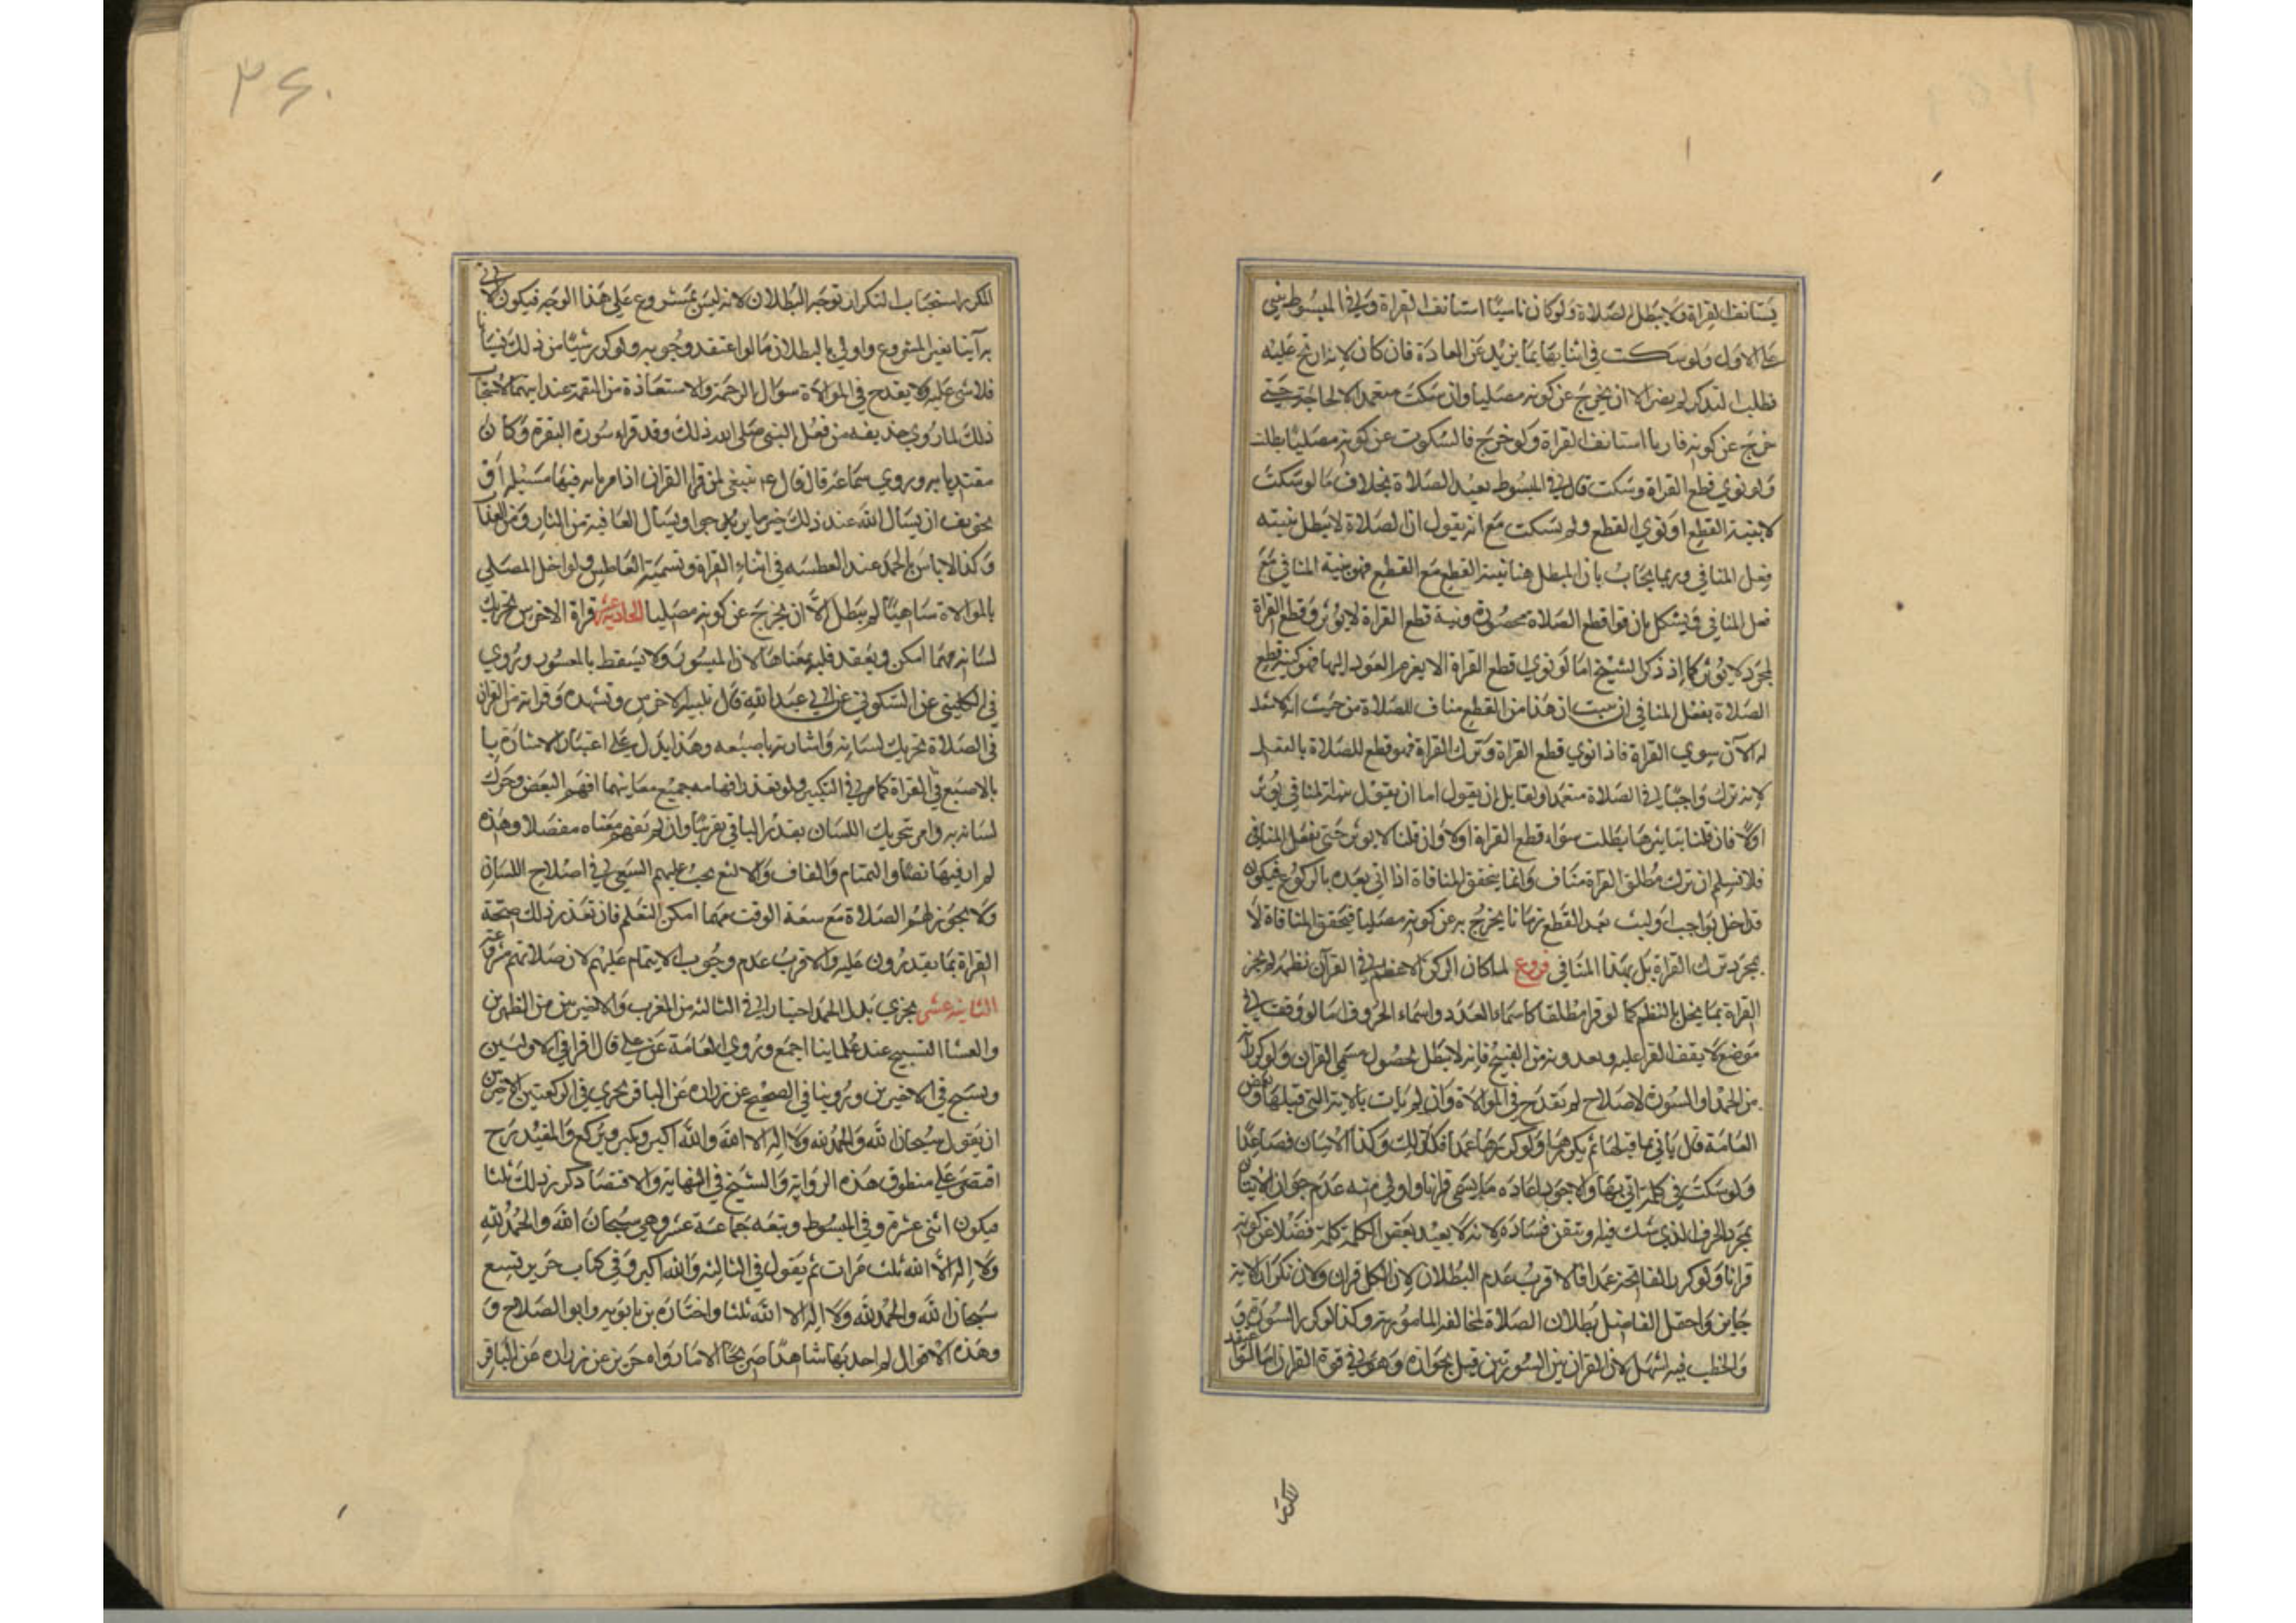 يستانف القراة ولا يبطل الصلاة ولو كان ناسيا استانف القراة وفي المبسوط يبني
على الاول ولو سكت في اثنايها بما يزيد عن العادة فان كان لانه ارتج عليه
فطلب التذكر لم يضر الا ان يخرج عن كونه مصليا وان سكت متعمدا لا لحاجة حتى
خرج عن كونه قاريا استانف القراة ولو خرج فالسكوت عن كونه مصليا بطلت
ولو نوي قطع القراة وسكت قال في المبسوط يعيد الصلاة بخلاف ما لو سكت
لا بنية القطع او نوي القطع ولم يسكت مع انه يقول ان الصلاة لا يبطل بنيته
فعل المنافي وربما يجاب بان المبطل هنا نية القطع مع القطع فهو نية المنافي مع
فعل المنافي ويشكل بان قواطع الصلاة محصورة ونية قطع القراة لا يوثر وقطع القراة
بمجرد لا يوثر كما اذ ذكر الشيخ اما لو نوي قطع القراة الا يعزم العود اليها فهو كنية قطع
الصلاة بفعل المنافي ان هذا من القطع مناف للصلاة من حيث انه لا
له الآن سوي القراة فاذا نوي قطع القراة وترك القراة فهو قطع للصلاة بالفعل
لانه ترك واجبا في الصلاة متعمدا ولقايل ان يقول اما ان يقول نية المنافي يوثر
اولا فان قلنا بتاثيرها بطلت سواء قطع القراة اولا وان قلنا لا يوثر حتى يفعل المنافي
فلا نسلم ان ترك مطلق القراة مناف وانما يتحقق المنافاة اذا اتي بعده بالركوع فيكون
قد اخل بواجب او لبث بعد القطع زمانا يخرج به عن كونه مصليا فيتحقق المنافاة لا
بمجرد ترك القراة بل بهذا المنافي فروع لما كان الركن الاعظم في القرآن نظمه لم يجز
القراة بما يخل بالنظم كما لو قرا مطلقا كاسماء العدد واسماء الحروف اما لو وقف في
موضع لا يقف القرا عليه ويعدونه من القبيح فانه لا يبطل لحصول مسمي القران ولو كرر آية
من الحمد او السورة لاصلاح لم تقدح في الموالاة وان لم يات بالاية التي قبلها وبعض
العامة قال ياتي بما قبلها ثم يكررها ولو كررها عمدا فكذلك وكذا الاتيان فصاعدا
ولو سكت في كلمة اتي بها والاجود اعادة ما يسمي قرانا واولي منه عدم جواز الاتيان
بمجرد الحرف الذي شك فيه وتيقن فساده لانه لا يعيد بعض الكلمة كلمة فضلا عن كونه
قرانا ولو كرر الفاتحة عمدا فالاقرب عدم البطلان لان الكل قران ولان تكرار الاية
جايز واحتمل الفاضل بطلان الصلاة لمخالفه المامور به وكذا لو كرر السورة و
والخطب فيه اسهل لان القران بين السورتين قيل بجوازه وهو في قوة القران اما لو اعتقد
المكرر
٣٦٠
المكرر استحباب التكرار توجه البطلان لانه ليس بمشروع على هذا الوجه فيكون الاتي
به آتيا بغير المشروع واولي بالبطلان ما لو اعتقد وجوبه ولو كرر شيئا من ذلك نسيانا
فلا شي عليه ولا يقدح في الموالاة سؤال الرحمة والاستعاذة من النقمة عند ايتهما لاستحباب
ذلك لما روي حذيفه من فعل النبي صلى الله ذلك وقد قراء سورة البقرة وكان
مقتديا به وروي سماعة قال قال ع ينبغي لمن قراء القران اذا مر باية فيها مسئلة او
تخويف ان يسال الله عند ذلك خير ما يرجوا ويسال العافية من النار ومن العذاب
وكذا لا باس بالحمد عند العطسه في اثناء القراة وتسمية العاطس ولو اخل المصلي
بالموالاة ساهيا لم يبطل الا ان يخرج عن كونه مصليا الحادية عشر قراة الاخرس تحريك
لسانه مهما امكن ويعقد قلبه بمعناها لان الميسور لا يسقط بالمعسور وروي
في الكليني عن السكوني عن ابي عبد الله قال تلبية الاخرس وتشهده وقراته من القران
في الصلاة تحريك لسانه واشارته باصبعه وهذا يدل على اعتبار الاشارة با
بالاصبع في القراة كما مر في التكبير ولو تعذر افهامه جميع معانيها افهم البعض وحرك
لسانه به وامر تحريك اللسان بقدر الباقي تقريبا وان لم يفهم معناه مفصلا وهذه
لم ار فيها نصا والتمتام والفاف والالثغ يجب عليهم السعي في اصلاح اللسان
ولا يجوز لهم الصلاة مع سعة الوقت مهما امكن التعلم فان تعذر ذلك صحة
القراة بما يقدرون عليه والاقرب عدم وجوب الايتمام عليهم لان صلاتهم مشروعة
الثانية عشر يجزي بدل الحمد اختيارا في الثالثة من المغرب والاخيرتين من الظهرين
والعشا التسبيح عند علماينا اجمع وروي العامة عن علي قال اقرا في الاولتين
وسبح في الاخيرتين وروينا في الصحيح عن زراره عن الباقر يجزي في الركعتين الاخيرتين
ان يقول سبحان الله والحمد لله ولا اله الا الله والله اكبر ويكبر ويركع والمفيد رح
اقتصر على منطوق هذه الرواية والشيخ في النهاية والاقتصاد كرر ذلك ثلثا
فيكون اثنى عشرة وفي المبسوط وتبعه جماعة عشر وهي سبحان الله والحمد لله
ولا اله الا الله ثلث مرات ثم يقول في الثالثة والله اكبر وفي كتاب حريز تسع
سبحان الله والحمد لله ولا اله الا الله ثلثا واختاره بن بابويه وابو الصلاح و
وهذه الاقوال لم اجد بها شاهدا صريحا الا ما رواه حريز عن زراره عن الباقر